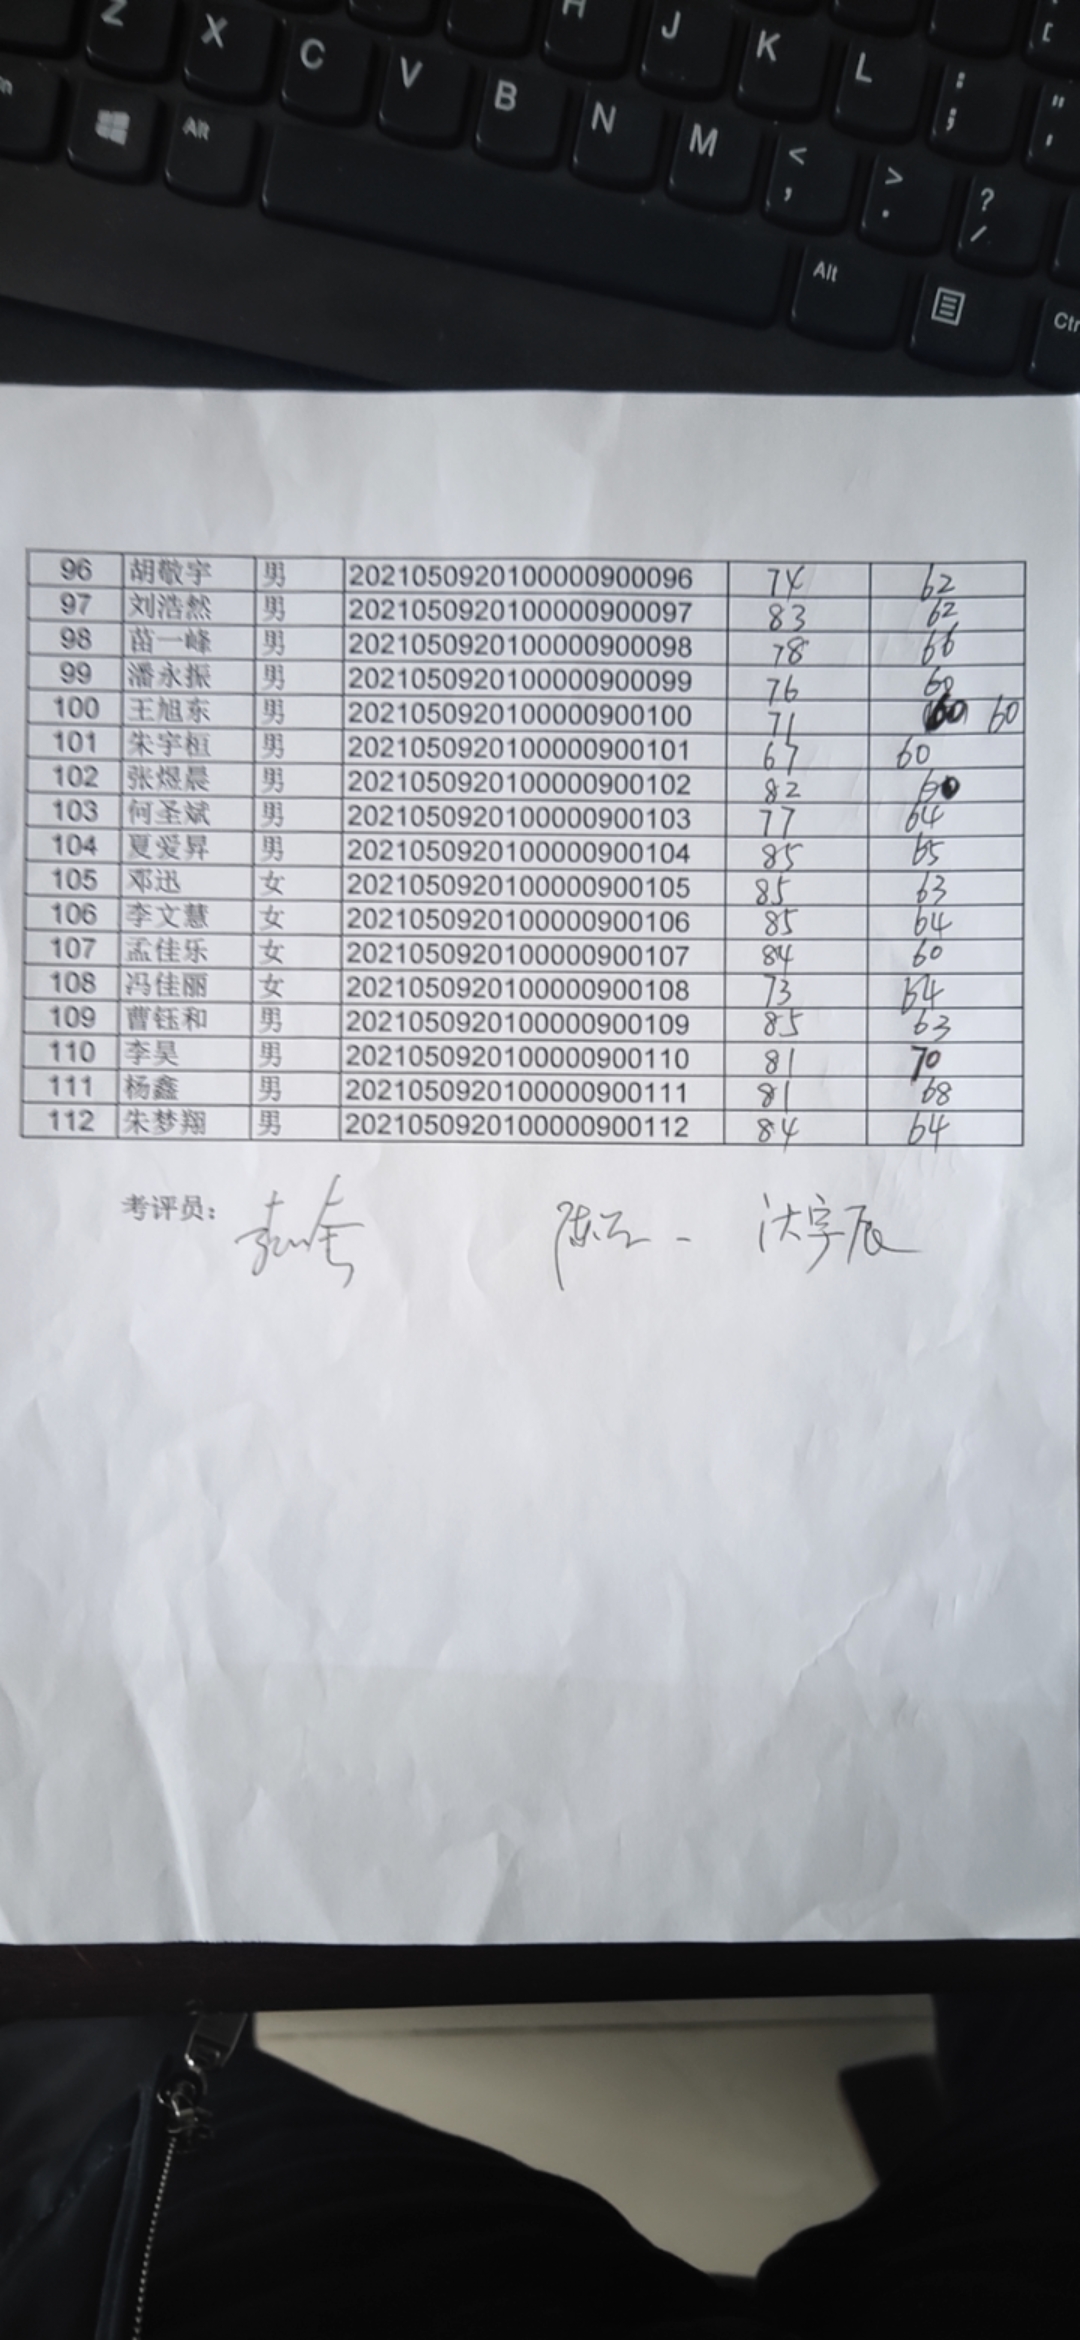 Z X C V B N M H J K L : ; " '
Alt < , > . ? /
Alt Ctr
96 胡敬宇 男 20210509201000009000096 74 62
97 刘浩然 男 20210509201000009000097 83 62
98 苗一峰 男 20210509201000009000098 78 66
99 潘永振 男 20210509201000009000099 76 60
100 王旭东 男 2021050920100000900100 71 60
101 朱宇桓 男 2021050920100000900101 67 60
102 张煜晨 男 2021050920100000900102 82 60
103 何圣斌 男 2021050920100000900103 77 64
104 夏爱昇 男 2021050920100000900104 85 65
105 邓迅 女 2021050920100000900105 85 63
106 李文慧 女 2021050920100000900106 85 64
107 孟佳乐 女 2021050920100000900107 84 60
108 冯佳丽 女 2021050920100000900108 73 64
109 曹钰和 男 2021050920100000900109 85 63
110 李昊 男 2021050920100000900110 81 70
111 杨鑫 男 2021050920100000900111 81 68
112 朱梦翔 男 2021050920100000900112 84 64
考评员：